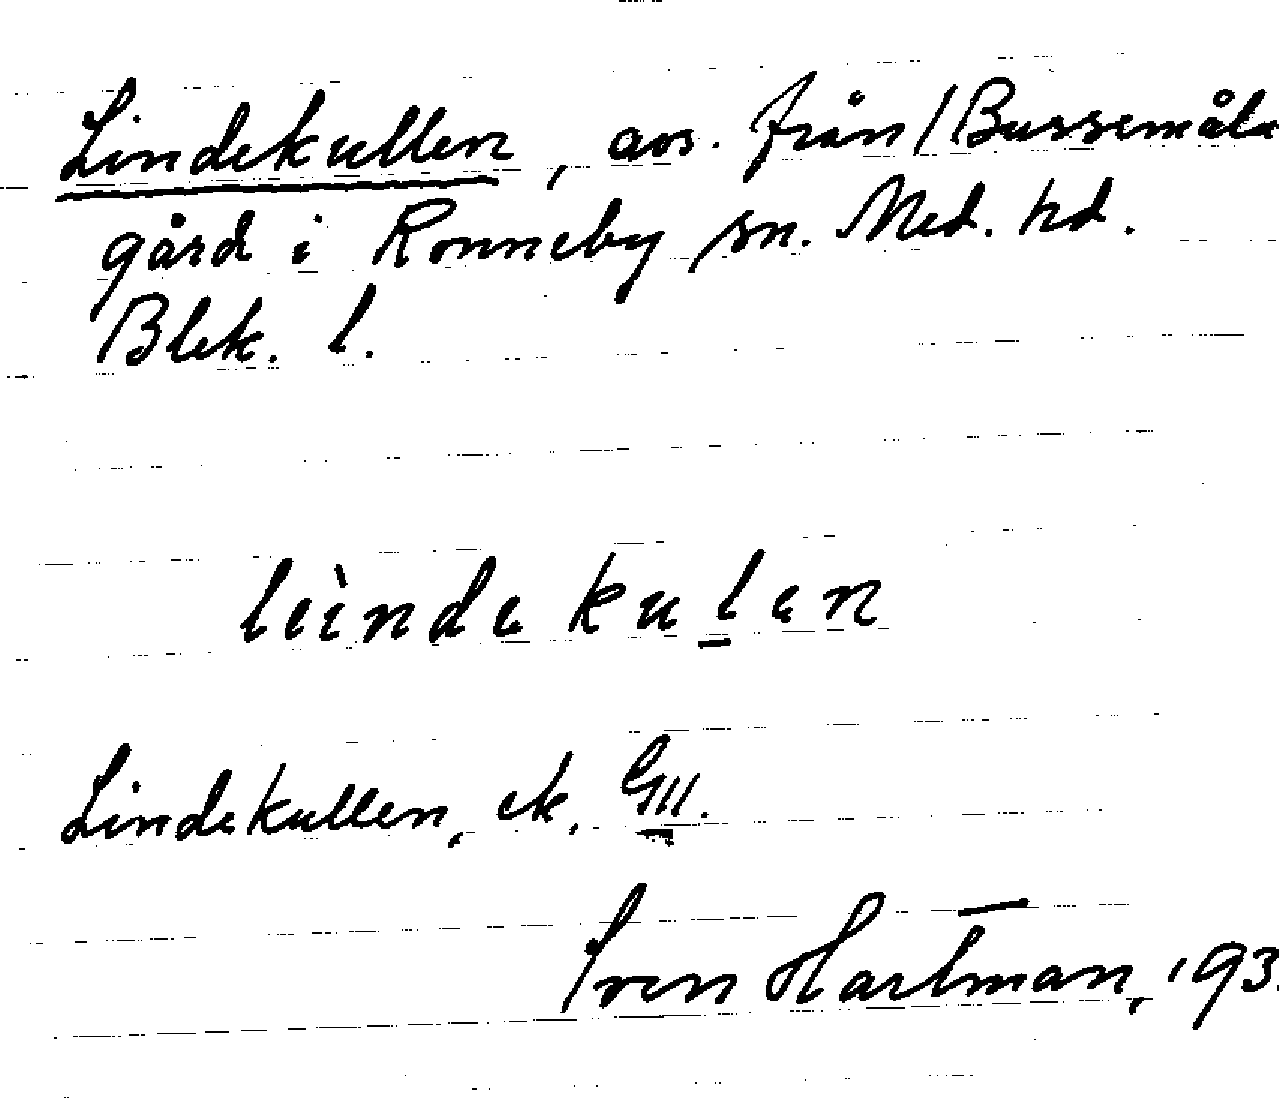 Lindekullen, avs. från / Bussemåla
gård i Ronneby sn. Med. hd.
Blek. l.
leìnde kulen
Lindekullen, ek. GIII.
Sven Hartman, 193